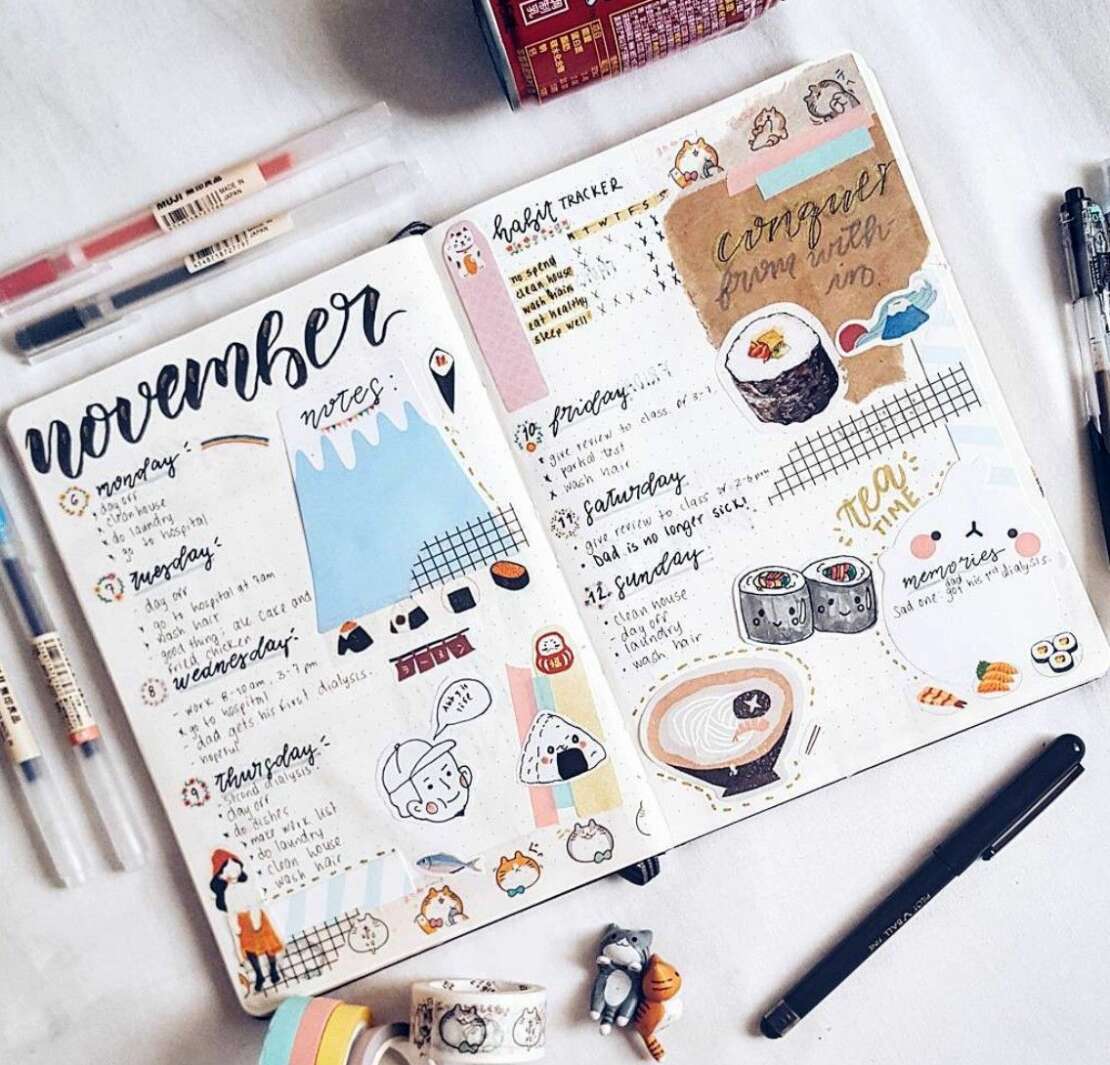 november
notes:
6 monday
day off
clean house
do laundry
go to hospital
7 tuesday
day off
go to hospital at 7am
wash hair
good thing: ate cake and
fried chicken
8 wednesday
work 8-10am, 3-7 pm
go to hospital
dad gets his first dialysis.
hopeful
9 thursday
second dialysis
day off
do dishes
make work list
do laundry
clean house
wash hair
life
habit TRACKER
M T W T F S S
no spend
clean house
wash hair
eat healthy
sleep well
conquer
from with-
in.
10 friday
give review to class.
wash hair
11 saturday
give review to class @ 2-6pm
Dad is no longer sick!
12 sunday
clean house
day off
laundry
wash hair
tea
TIME
memories
Sad one: dad got his 1st dialysis.
MUJI 無印良品
MADE IN
JAPAN
JAPAN
PILOT V BALL